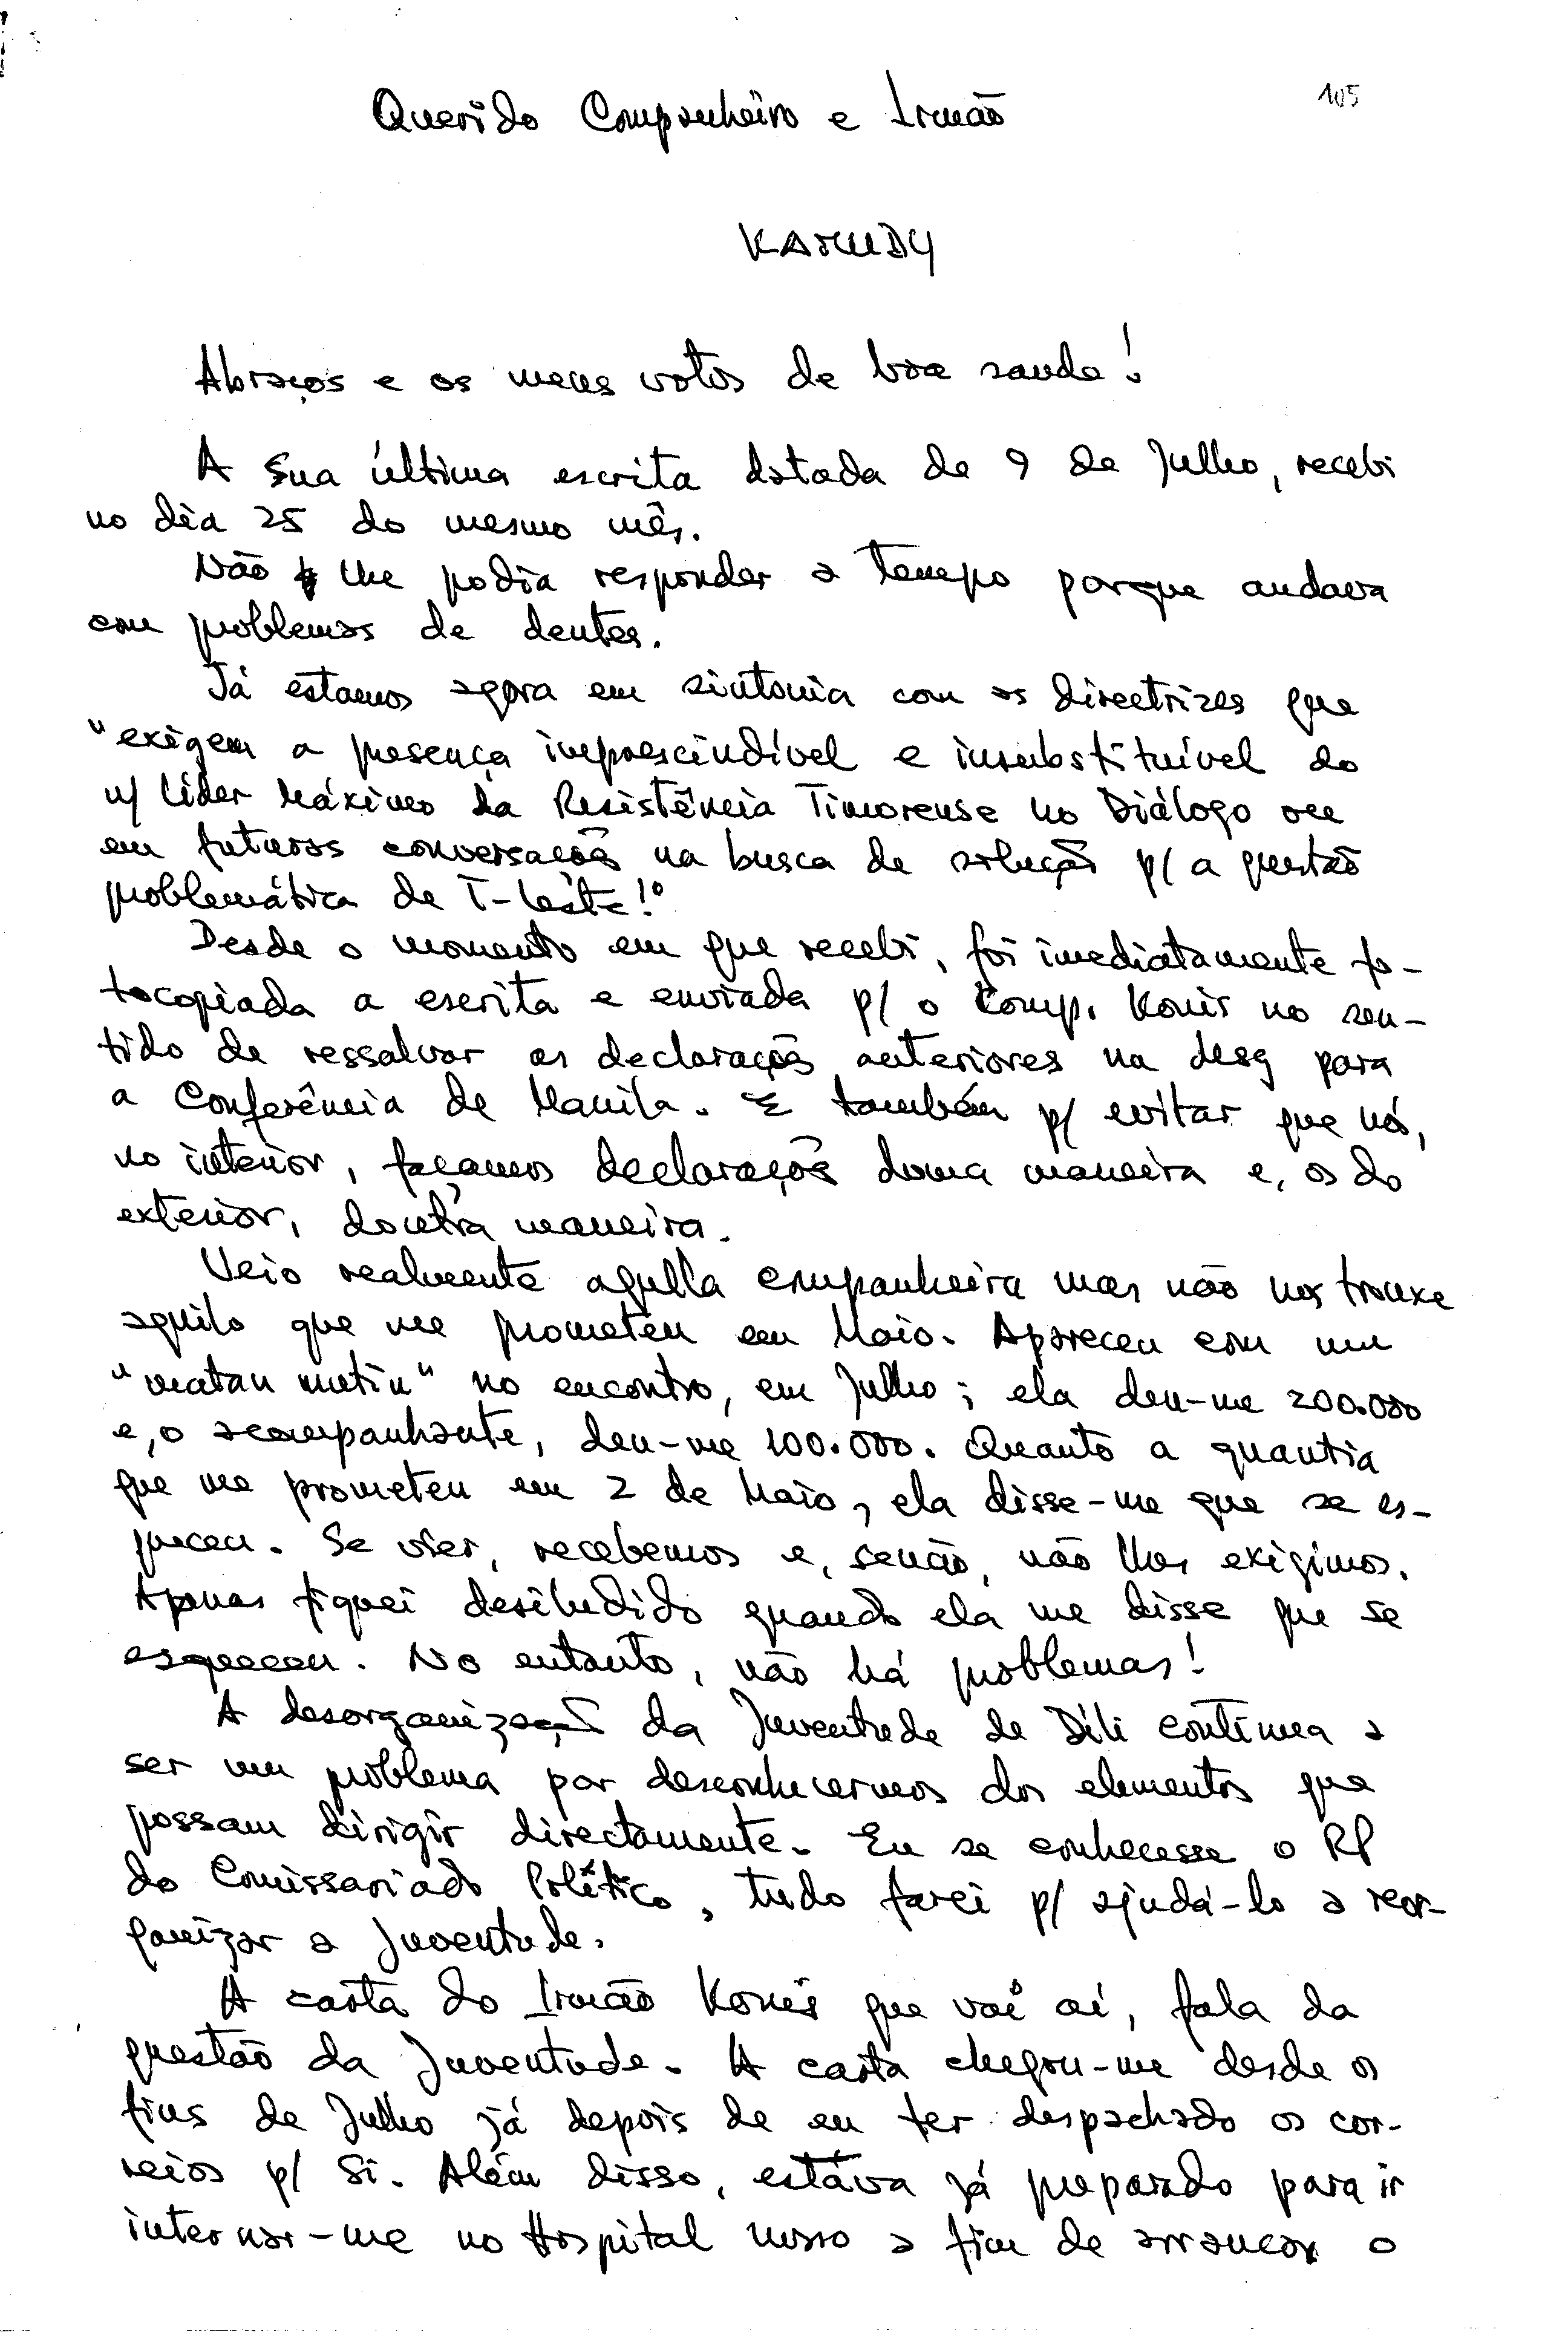 105
Querido Companheiro e Irmão
Abraços e os meus votos de boa saude!
A sua última escrita datada de 9 de Julho, recebi
no dia 25 do mesmo mês.
Não lhe podia responder a tempo porque andava
com problemas de dentes.
Já estamos agora em sintonia com as directrizes que
"exigem a presença imprescindível e insubstituível do
n/ Líder Máximo da Resistência Timorense no Diálogo ou
em futuras conversações na busca de solução p/ a questão
problemática de T-Leste!"
Desde o momento em que recebi, foi imediatamente fo-
tocopiada a escrita e enviada p/ o Comp. Konis no sen-
tido de ressalvar as declarações anteriores na desg para
a Conferência de Manila. E também p/ evitar que nós,
no interior, façamos declarações duma maneira e, os do
exterior, doutra maneira.
Veio realmente aquella companheira mas não nos trouxe
aquilo que me prometeu em Maio. Apareceu com um
"matan mutin" no encontro, em Julho; ela deu-me 200.000
e, o acompanhante, deu-me 100.000. Quanto a quantia
que me prometeu em 2 de Maio, ela disse-me que se es-
queceu. Se vier, recebemos e, senão, não lhes exigimos.
Apenas fiquei desiludido quando ela me disse que se
esqueceu. No entanto, não há problemas!
A desorganização da Juventude de Díli continua a
ser um problema por desconhecermos dos elementos que
possam dirigir directamente. Eu se conhecesse o RP
do Comissariado Político, tudo farei p/ ajudá-lo a reor-
ganizar a Juventude.
A carta do Irmão Konis que vai aí, fala da
questão da Juventude. A carta chegou-me desde os
fins de Julho já depois de eu ter despachado os cor-
reios p/ Si. Além disso, estáva já preparado para ir
internar-me no Hospital nosso a fim de arrancar o